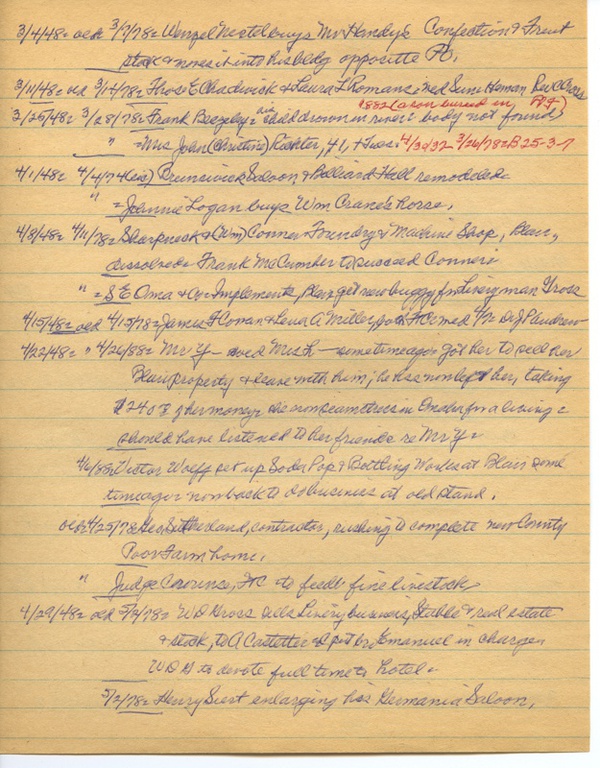 3/4/48= old 3/7/78= Wenzel Nestel buys Mr Handy's Confection & Fruit
stock & moves it into his bldg opposite PO.
3/11/48= old 3/14/78= Thos E Chadwick & Laura L Romans, med
1882 (a son buried in
3/25/48= 3/28/78= Frank Beezley's child drown in river= body not found
" = Mrs John (Christine) Richter, 41, + Tues. 4/30/32 3/26/78=B25-3-7
4/1/48= 4/4/74(sic) Brunswick Saloon & Billiard Hall remodeled=
" = Johnnie Logan buys Wm Crane's horse.
4/8/48= 4/11/78= Sharpneck & (Wm) Conner Foundry & Machine Shop, Blair,
dissolved= Frank McCumber to succeed Conner=
" = S E Oma & Co= Implements, Blair get new buggy fr Liveryman Gross
4/15/48= old 4/18/78= James H Cowan & Lena A Miller, both med
4/22/48= " 4/26/88= Mr Y- wed Mrs L- sometime ago got her to sell her
Blair property & leave with him; he has now left her, taking
$240 of her money= she now seamstress in Omaha for a living=
should have listened to her friends re Mr Y=
Victor Wolff set up Soda Pop & Bottling Works at Blair some
time ago= now back to do business at old stand.
old= 4/25/78= Geo Sutherland, contractor, rushing to complete new County
Poor Farm home.
" Judge to feed fine livestock=
4/29/48= old 5/2/78= W D Gross sells Livery business, Stable & real estate
& stock, to A Castetter & put bro Emanuel in charge=
W D G to devote full time to hotel=
5/2/78= Henry enlarging his Germania Saloon.